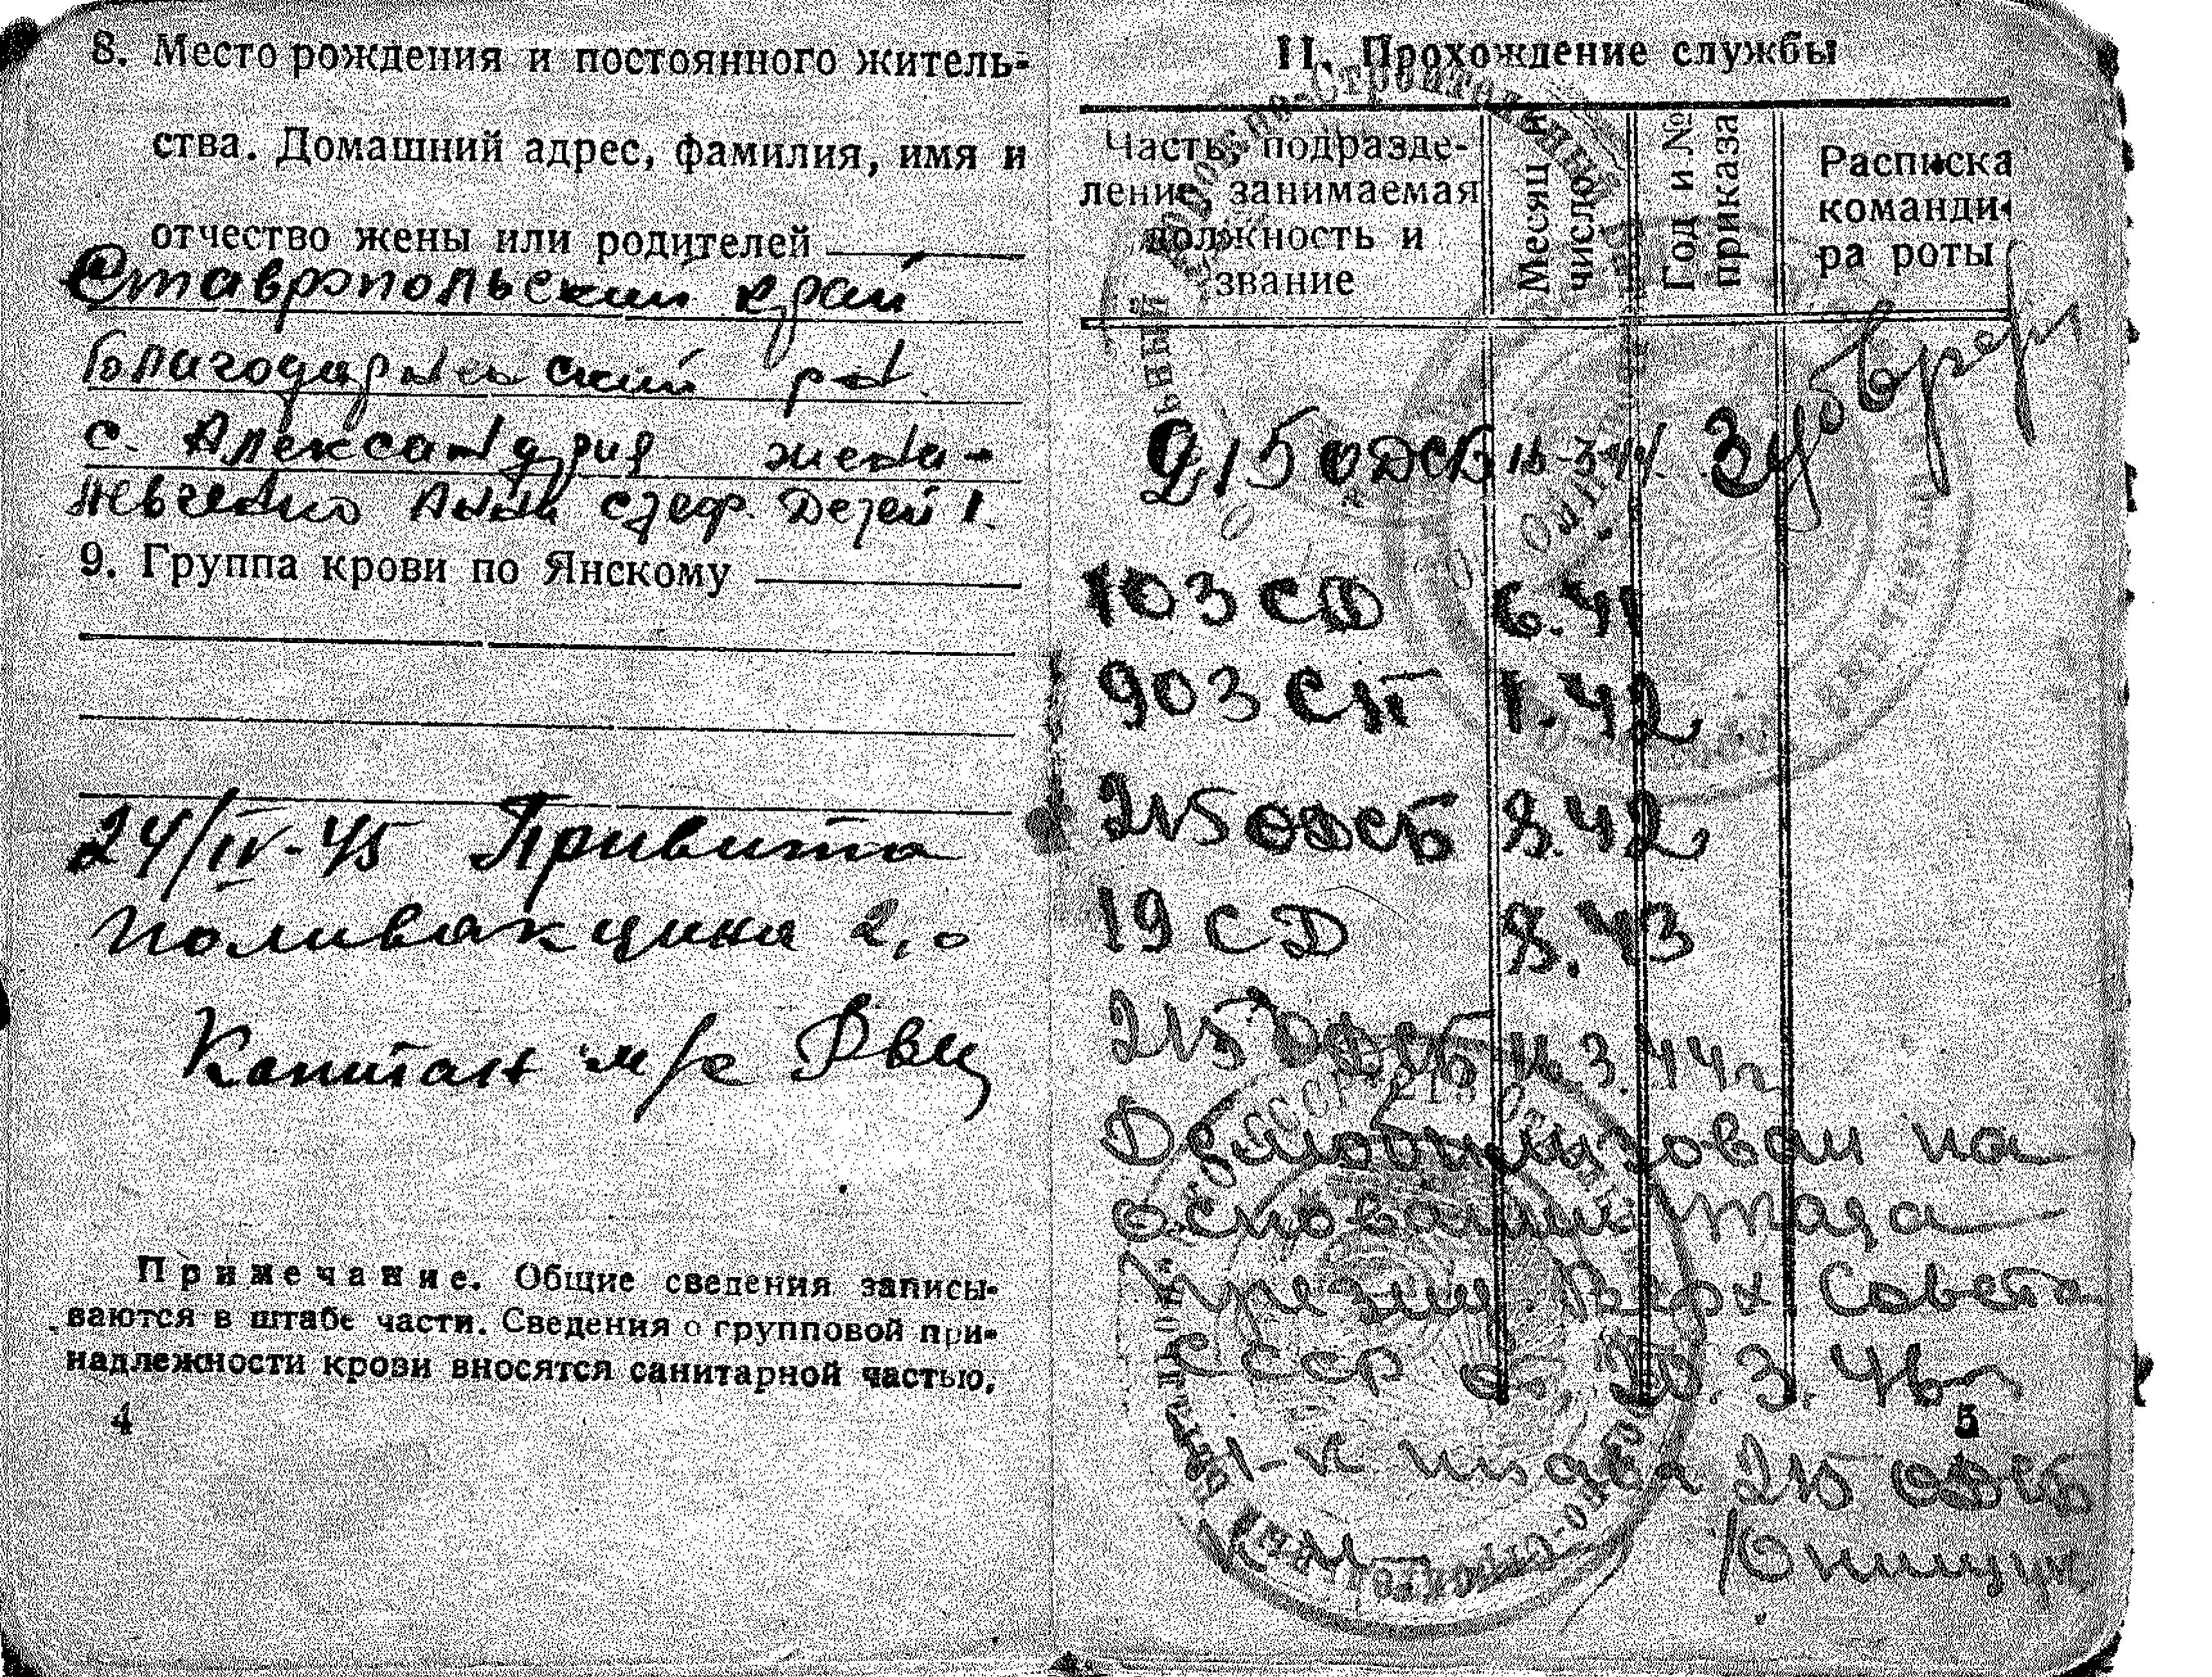 8. Место рождения и постоянного житель-
ства. Домашний адрес, фамилия, имя и
отчество жены или родителей
Ставропольский край
Благодарненский
с. Александрия жена-
Анна Дезей 1.
9. Группа крови по Янскому
24/IV-45 Привита
поливакцина 2,0
Капитан м/с
Примечание. Общие сведения записы-
ваются в штабе части. Сведения о групповой при-
надлежности крови вносятся санитарной частью.
4
II. Прохождение службы
Часть, подразде-
ление, занимаемая
должность и
звание
Месяц и
число
Год и №
приказа
Расписка
команди-
ра роты
215 ОДСБ
103 СД 6.41
903 СП 1.42
215 ОДСБ 8.42
19 СД 8.43
215 ОДСБ 16.3.44г
Демобилизован на
основании Указа
Верх Совета
СССР от 20.3.46г
5
штаба 215 ОДСБ